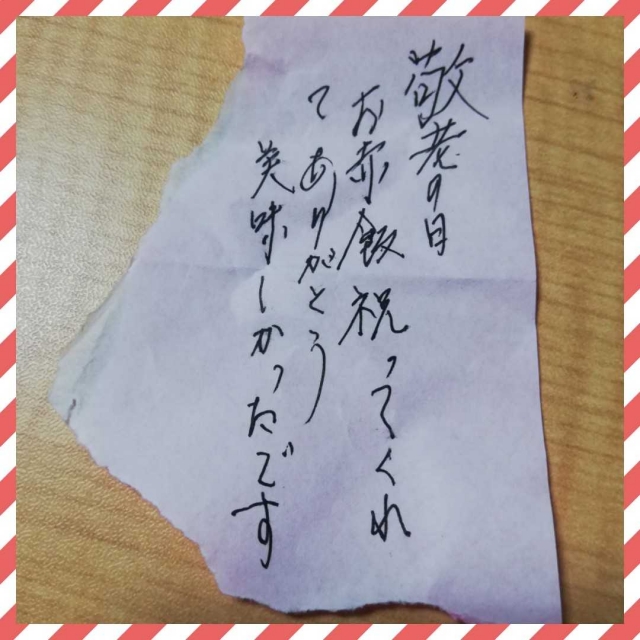 敬老の日
お赤飯祝ってくれ
て ありがとう
美味しかったです